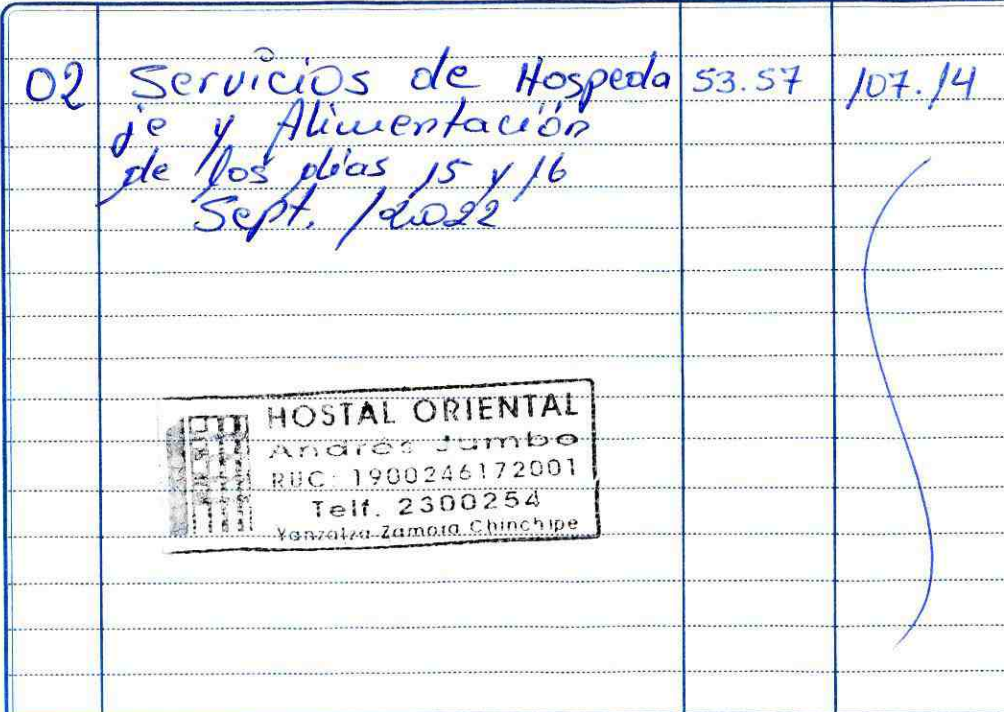 02 Servicios de Hospeda 53.57 107.14
je y Alimentación
de los días 15 y 16
Sept. /2022
HOSTAL ORIENTAL
Andrés Jumbo
RUC: 1900246172001
Telf. 2300254
Yanzatza-Zamora Chinchipe